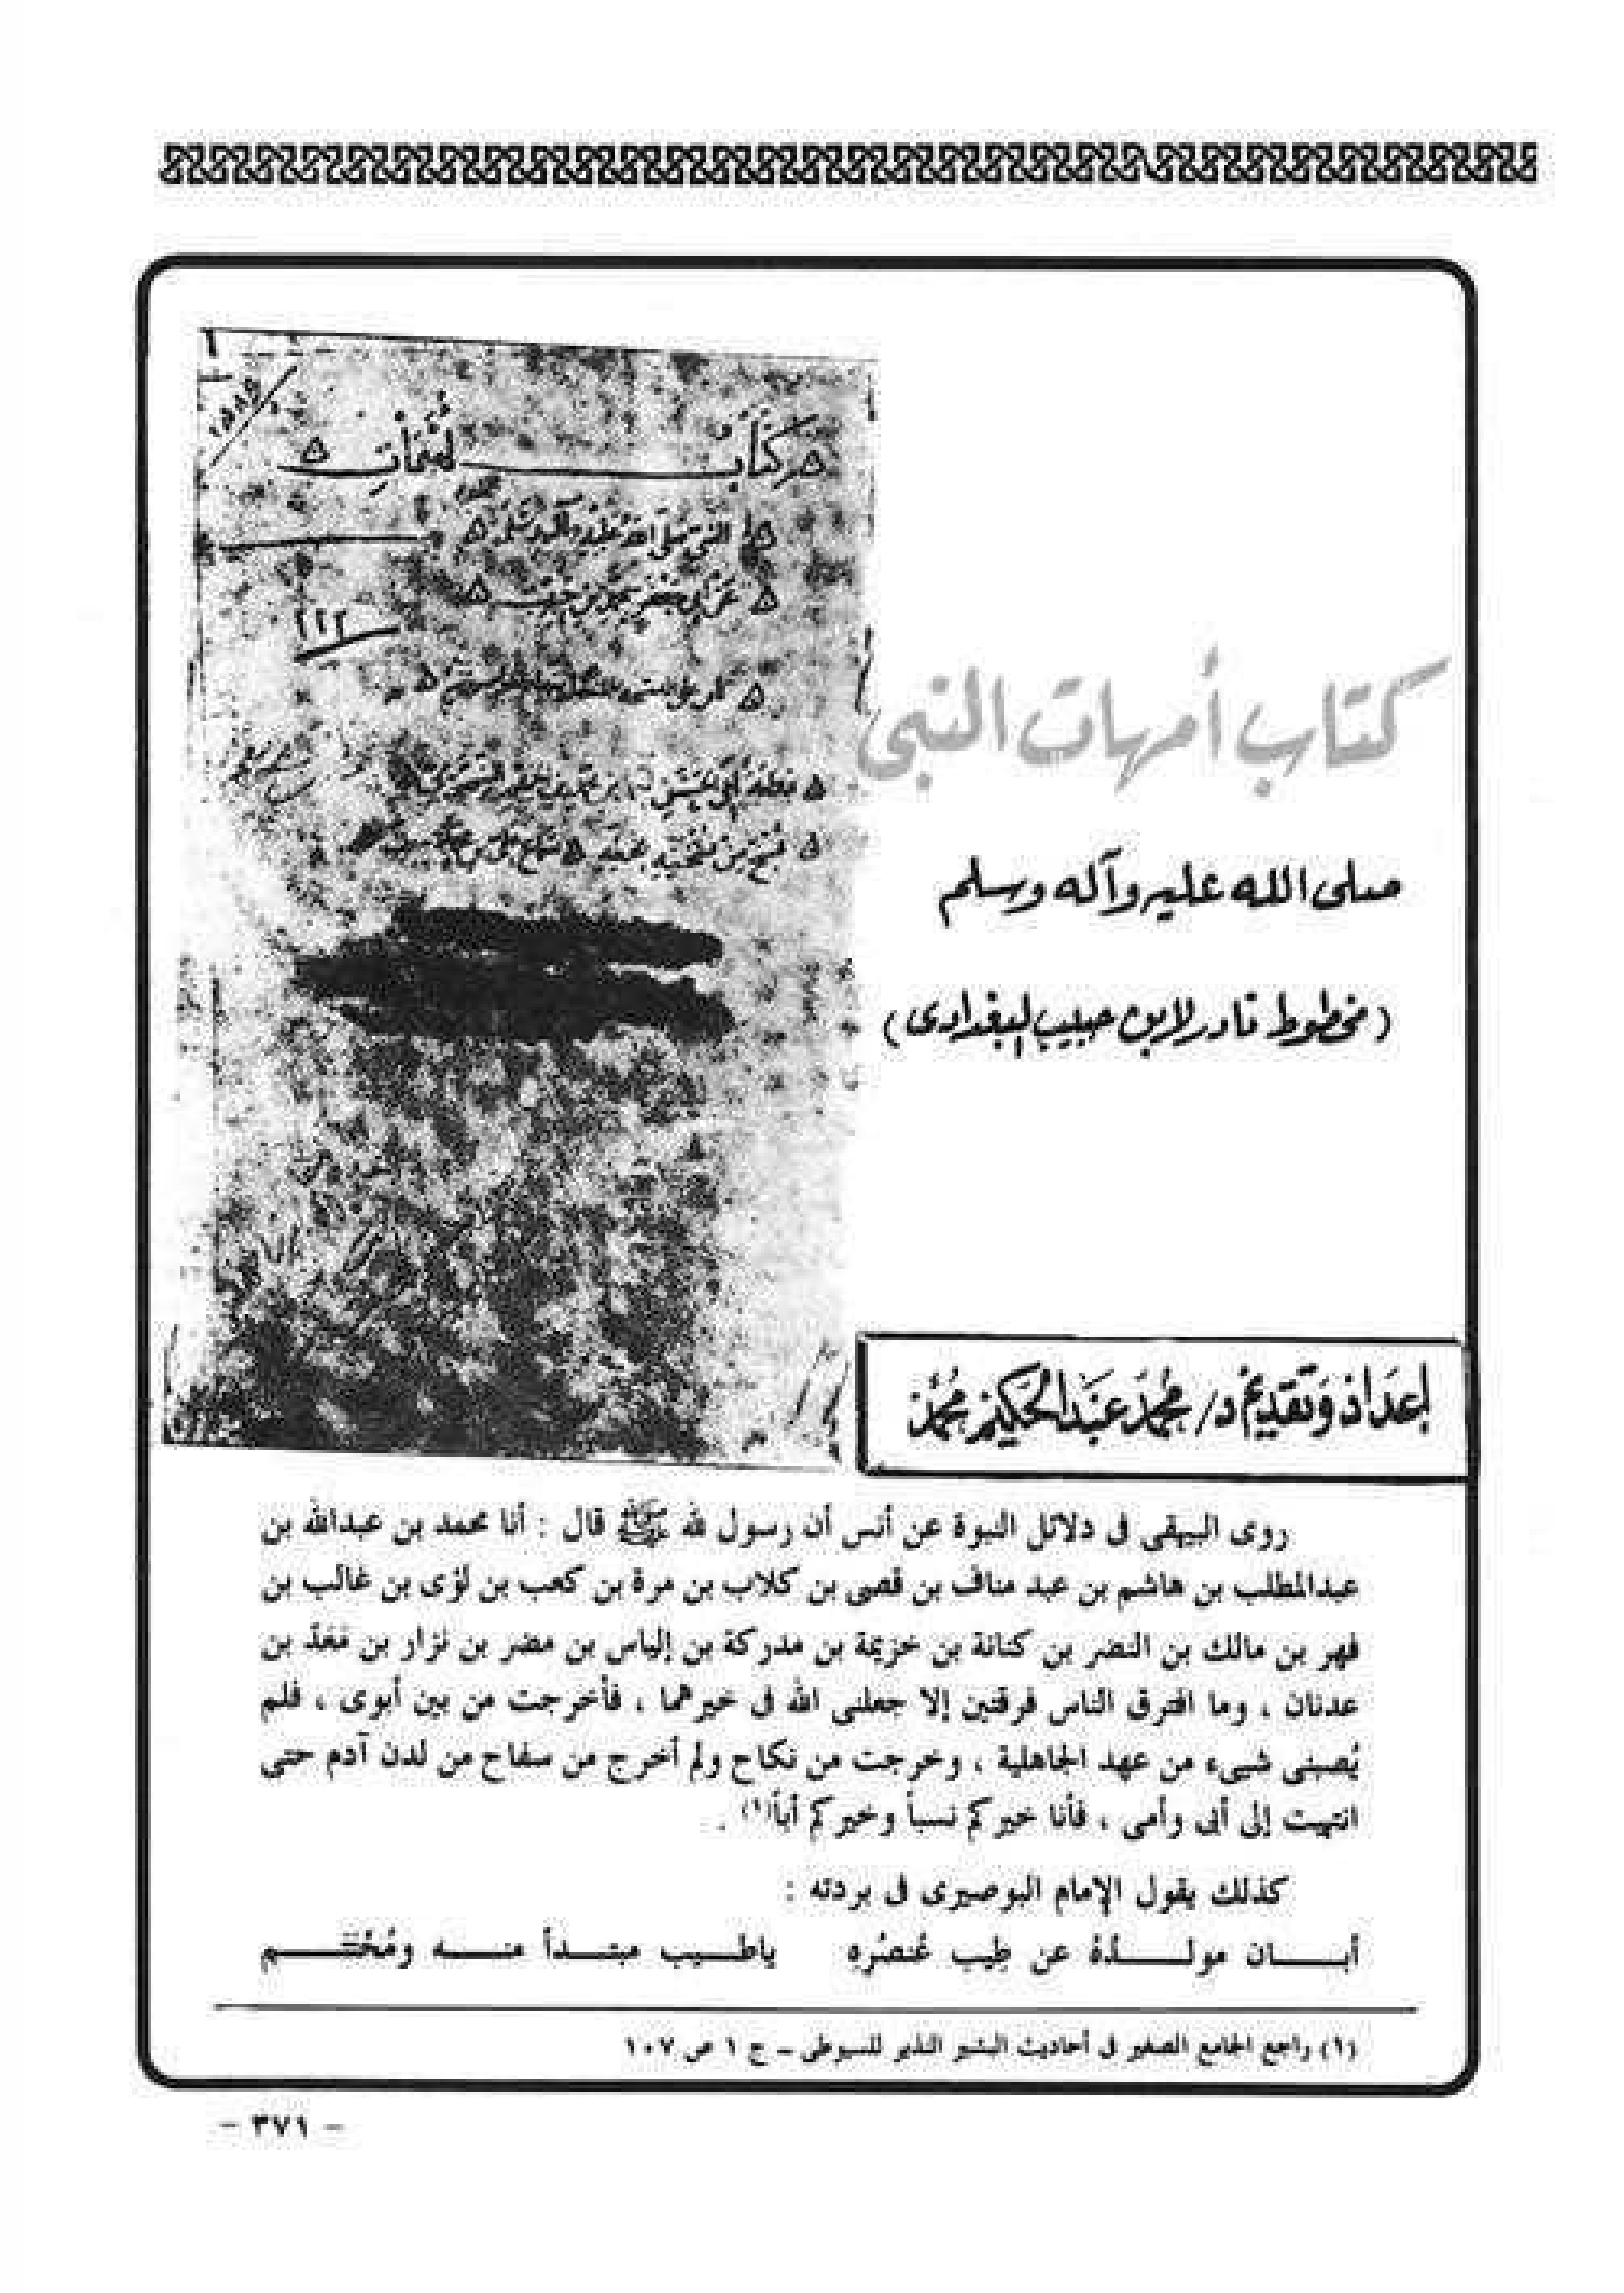 كتاب أمهات
النبي صلى الله عليه وآله وسلم
عن أبي جعفر محمد بن حبيب
٢١٢
كتاب أمهات النبى
صلى الله عليه وآله وسلم
(مخطوط نادر لابن حبيب البغدادى)
إعداد وتقديم د/ محمد عبد الحكيم محمد
روى البيهقى فى دلائل النبوة عن أنس أن رسول لله ﷺ قال : أنا محمد بن عبدالله بن
عبدالمطلب بن هاشم بن عبد مناف بن قصى بن كلاب بن مرة بن كعب بن لؤى بن غالب بن
فهر بن مالك بن النضر بن كنانة بن خزيمة بن مدركة بن إلياس بن مضر بن نزار بن مَعَدّ بن
عدنان ، وما افترق الناس فرقتين إلا جعلنى الله فى خيرهما ، فأخرجت من بين أبوى ، فلم
يُصبنى شيىء من عهد الجاهلية ، وخرجت من نكاح ولم أخرج من سفاح من لدن آدم حتى
انتهيت إلى أبى وأمى ، فأنا خيركم نسباً وخيركم أباً(١) .
كذلك يقول الإمام البوصيرى فى بردته :
أبـــان مولـــدُهُ عن طِيب عُنصُرِهِ ياطـــيب مبتـــدأ منـــه ومُخْتَتـــم
(١) راجع الجامع الصغير فى أحاديث البشير النذير للسيوطى - ج ١ ص ١٠٧
- ٣٧١ -